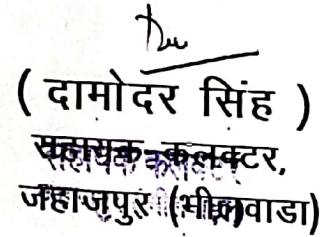 ( दामोदर सिंह )
सहायक कलक्टर,
जहाजपुर (भीलवाडा)